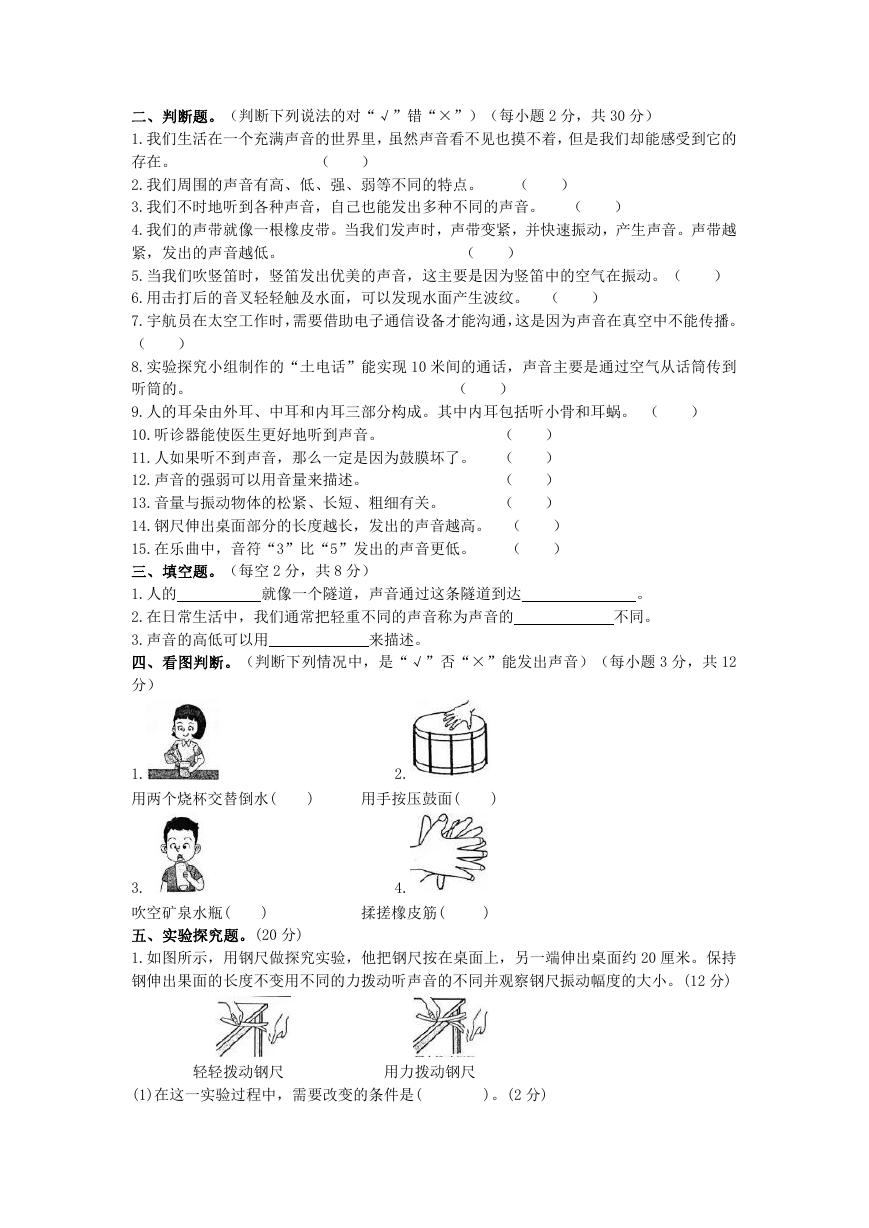 二、判断题。（判断下列说法的对“√”错“×”）（每小题 2 分，共 30 分）
1.我们生活在一个充满声音的世界里，虽然声音看不见也摸不着，但是我们却能感受到它的
存在。 （ ）
2.我们周围的声音有高、低、强、弱等不同的特点。 （ ）
3.我们不时地听到各种声音，自己也能发出多种不同的声音。 （ ）
4.我们的声带就像一根橡皮带。当我们发声时，声带变紧，并快速振动，产生声音。声带越
紧，发出的声音越低。 （ ）
5.当我们吹竖笛时，竖笛发出优美的声音，这主要是因为竖笛中的空气在振动。（ ）
6.用击打后的音叉轻轻触及水面，可以发现水面产生波纹。 （ ）
7.宇航员在太空工作时，需要借助电子通信设备才能沟通，这是因为声音在真空中不能传播。
（ ）
8.实验探究小组制作的“土电话”能实现 10 米间的通话，声音主要是通过空气从话筒传到
听筒的。 （ ）
9.人的耳朵由外耳、中耳和内耳三部分构成。其中内耳包括听小骨和耳蜗。 （ ）
10.听诊器能使医生更好地听到声音。 （ ）
11.人如果听不到声音，那么一定是因为鼓膜坏了。 （ ）
12.声音的强弱可以用音量来描述。 （ ）
13.音量与振动物体的松紧、长短、粗细有关。 （ ）
14.钢尺伸出桌面部分的长度越长，发出的声音越高。 （ ）
15.在乐曲中，音符“3”比“5”发出的声音更低。 （ ）
三、填空题。（每空 2 分，共 8 分）
1.人的 就像一个隧道，声音通过这条隧道到达 。
2.在日常生活中，我们通常把轻重不同的声音称为声音的 不同。
3.声音的高低可以用 来描述。
四、看图判断。（判断下列情况中，是“√”否“×”能发出声音）（每小题 3 分，共 12
分）
1. 2.
用两个烧杯交替倒水( ) 用手按压鼓面( )
3. 4.
吹空矿泉水瓶( ) 揉搓橡皮筋( )
五、实验探究题。(20 分)
1.如图所示，用钢尺做探究实验，他把钢尺按在桌面上，另一端伸出桌面约 20 厘米。保持
钢伸出果面的长度不变用不同的力拨动听声音的不同并观察钢尺振动幅度的大小。(12 分)
轻轻拨动钢尺 用力拨动钢尺
(1)在这一实验过程中，需要改变的条件是( )。(2 分)